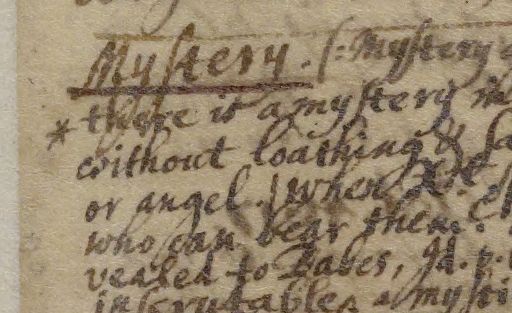 Mystery. (: Mystery
* there is a mystery in
without loathing &
or angel. / when Xt
who can bear them?
vealed to Babes, Id. p.
inscrutable, a mysti